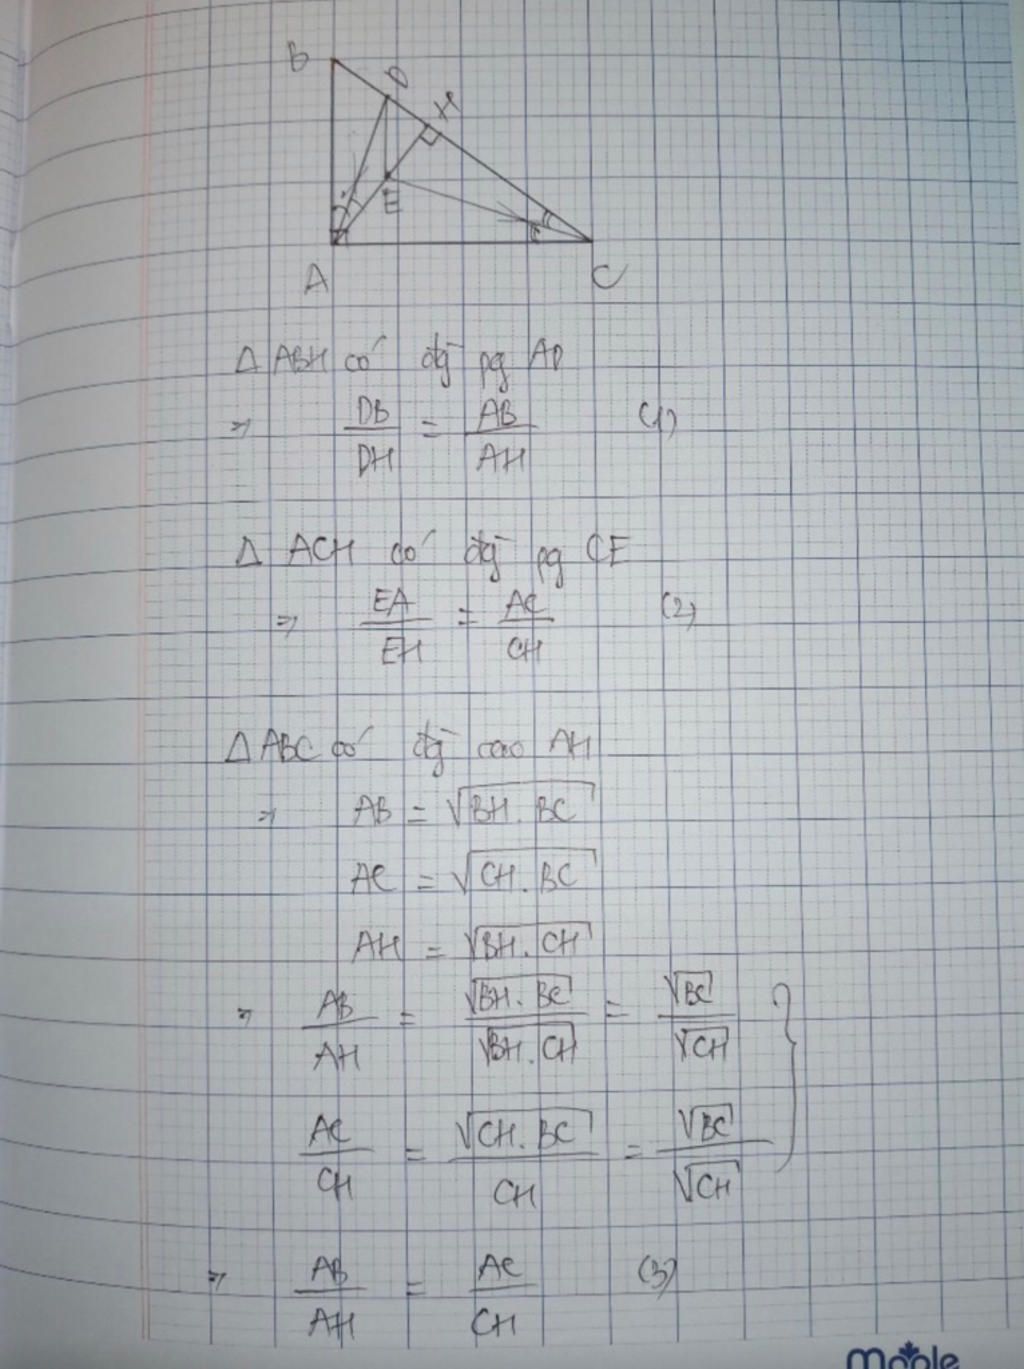 B
D
H
E
A
C
Δ ABH có đg pg AD
⇒ DB/DH = AB/AH (1)
Δ ACH có đg pg CE
⇒ EA/EH = AC/CH (2)
Δ ABC có đg cao AH
⇒ AB = √BH.BC
AC = √CH.BC
AH = √BH.CH
⇒ AB/AH = √BH.BC/√BH.CH = √BC/√CH
AC/CH = √CH.BC/CH = √BC/√CH
⇒ AB/AH = AC/CH (3)